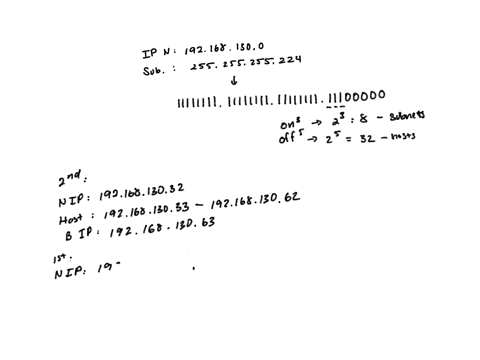 IP N: 192.168.130.0
Sub. : 255.255.255.224
↓
11111111.11111111.11111111.11100000
on³ → 2³ : 8 - subnets
off⁵ → 2⁵ = 32 - hosts
2nd:
NIP: 192.168.130.32
Host: 192.168.130.33 - 192.168.130.62
B IP: 192.168.130.63
1st.
NIP: 19-